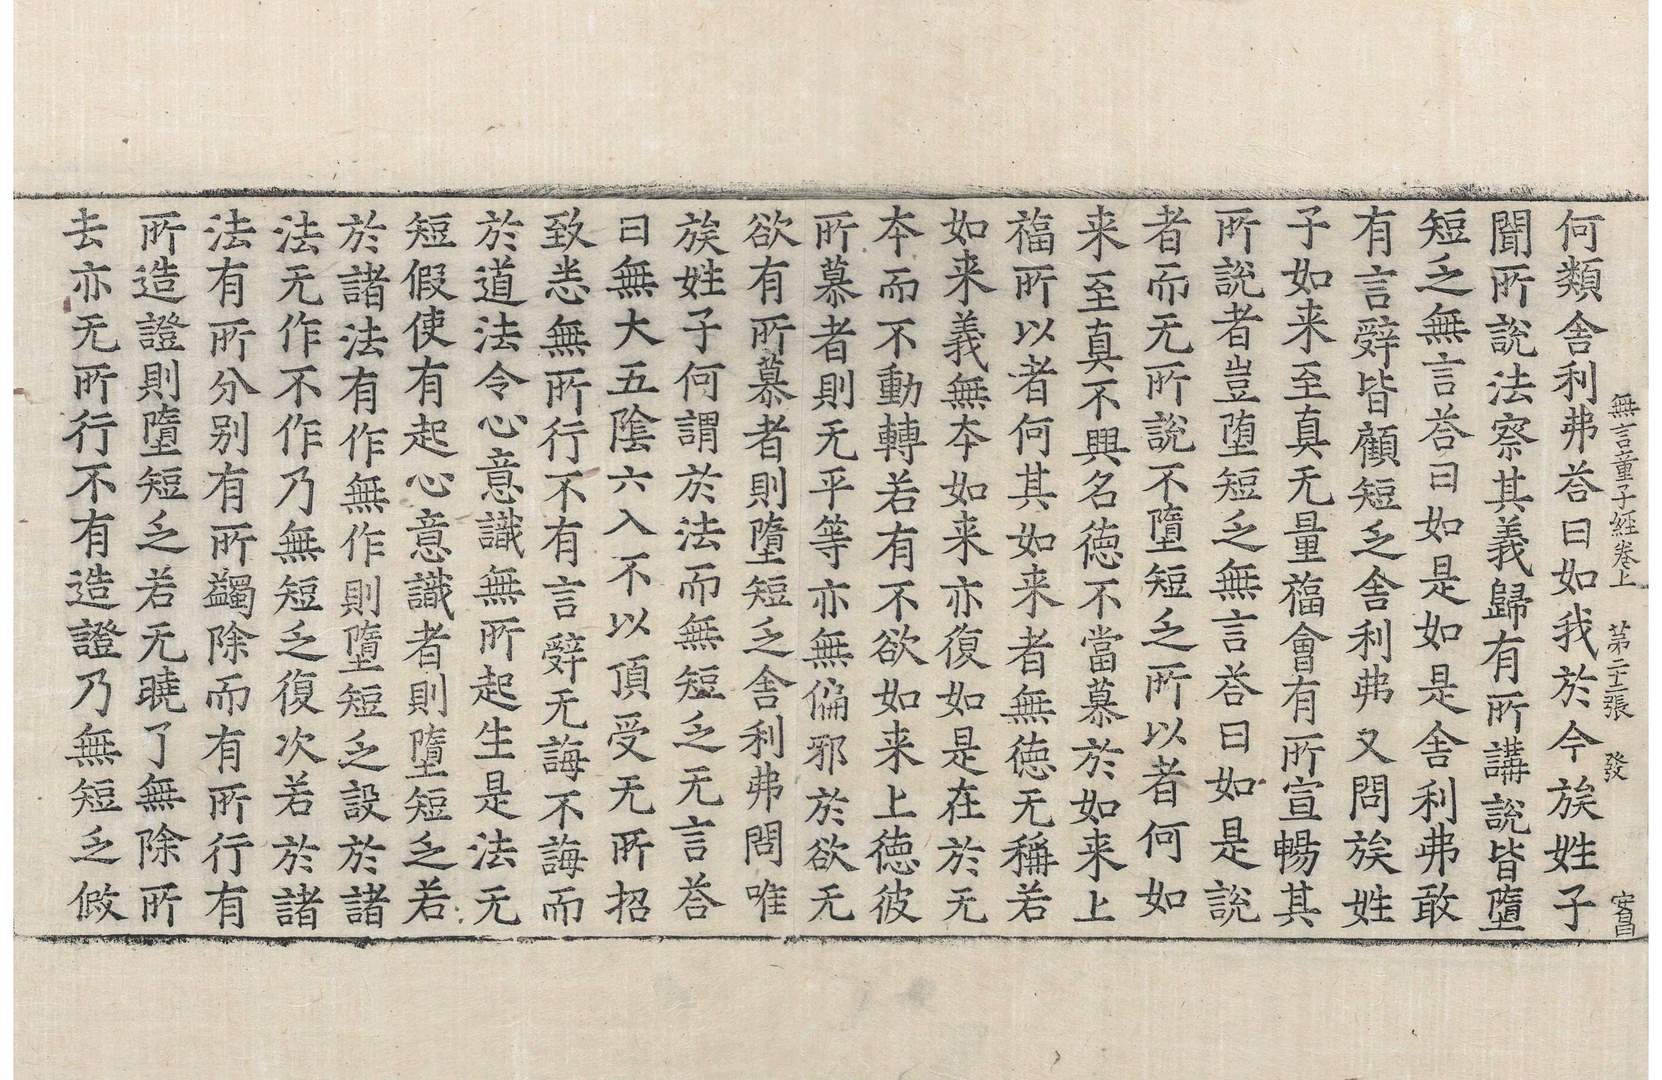 無言童子經卷上 第二十三張 發 安昌
何類舍利弗荅曰如我於今族姓子
聞所說法察其義歸有所講說皆墮
短乏無言荅曰如是如是舍利弗敢
有言辭皆顧短乏舍利弗又問族姓
子如来至真无量福會有所宣暢其
所說者豈墮短乏無言荅曰如是說
者而无所說不墮短乏所以者何如
来至真不興名德不當慕於如来上
福所以者何其如来者無德无稱若
如来義無本如来亦復如是在於无
本而不動轉若有不欲如来上德彼
所慕者則无平等亦無偏邪於欲无
欲有所慕者則墮短乏舍利弗問唯
族姓子何謂於法而無短乏无言荅
曰無大五陰六入不以頂受无所招
致恙無所行不有言辭无誨不誨而
於道法令心意識無所起生是法无
短假使有起心意識者則墮短乏若
於諸法有作無作則墮短乏設於諸
法无作不作乃無短乏復次若於諸
法有所分别有所蠲除而有所行有
所造證則墮短乏若无曉了無除所
去亦无所行不有造證乃無短乏假